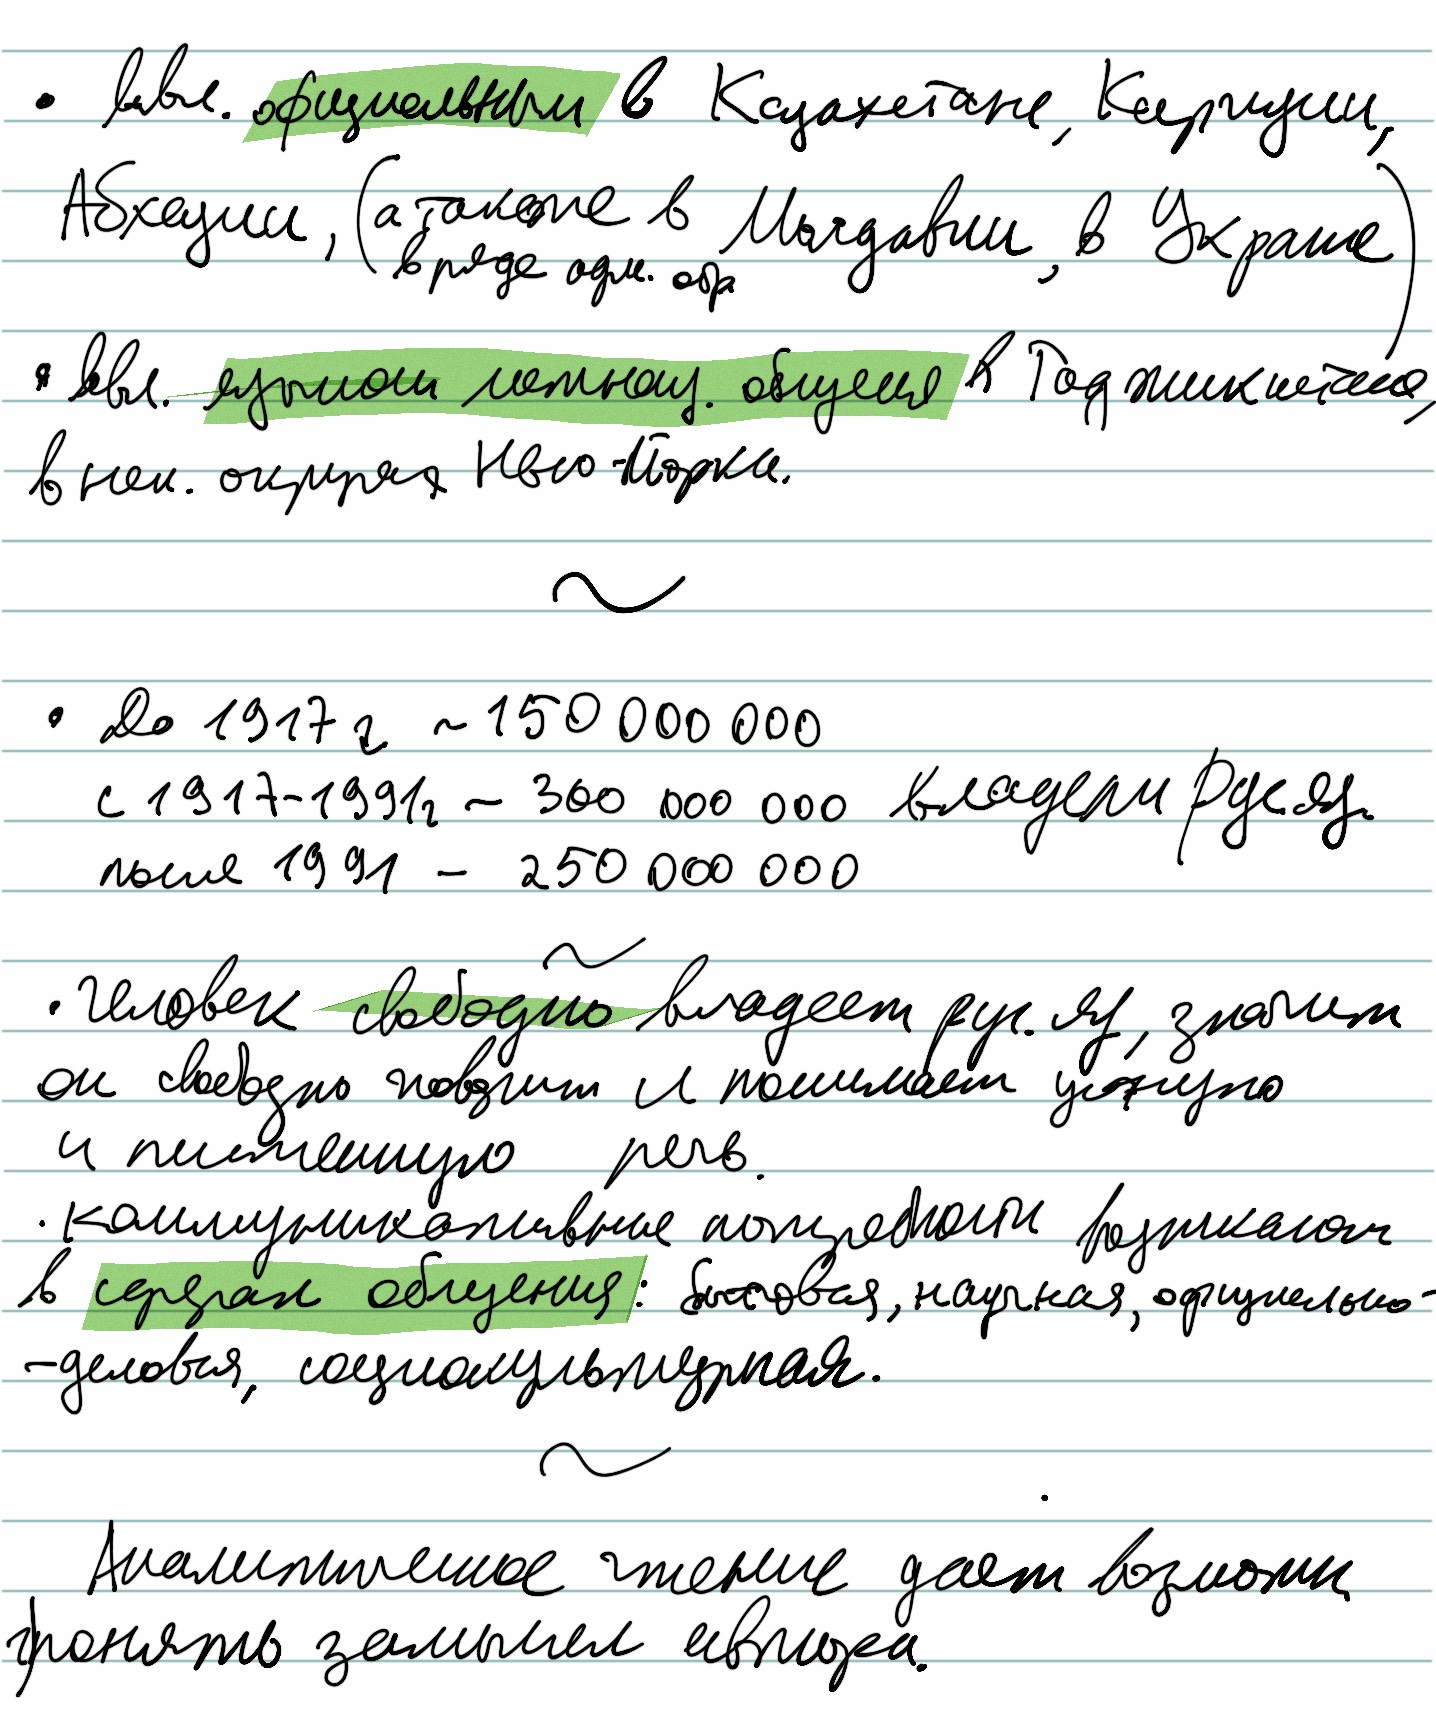 • явл. официальным в Казахстане, Киргизии,
Абхазии, (а также в Молдавии, в Украине)
в ряде адм. обр
• явл. языком межнац. общения в Таджикистане,
в нек. округах Нью-Йорка.
~
• До 1917 г ~ 150 000 000
с 1917-1991г ~ 300 000 000 владели рус. яз.
после 1991 - 250 000 000
~
• Человек свободно владеет рус. яз, значит
он свободно говорит и понимает устную
и письменную речь.
• коммуникативные потребности возникают
в сферах общения: бытовая, научная, официально-
-деловая, социокультурная.
~
Аналитическое чтение дает возможн
понять замысел автора.